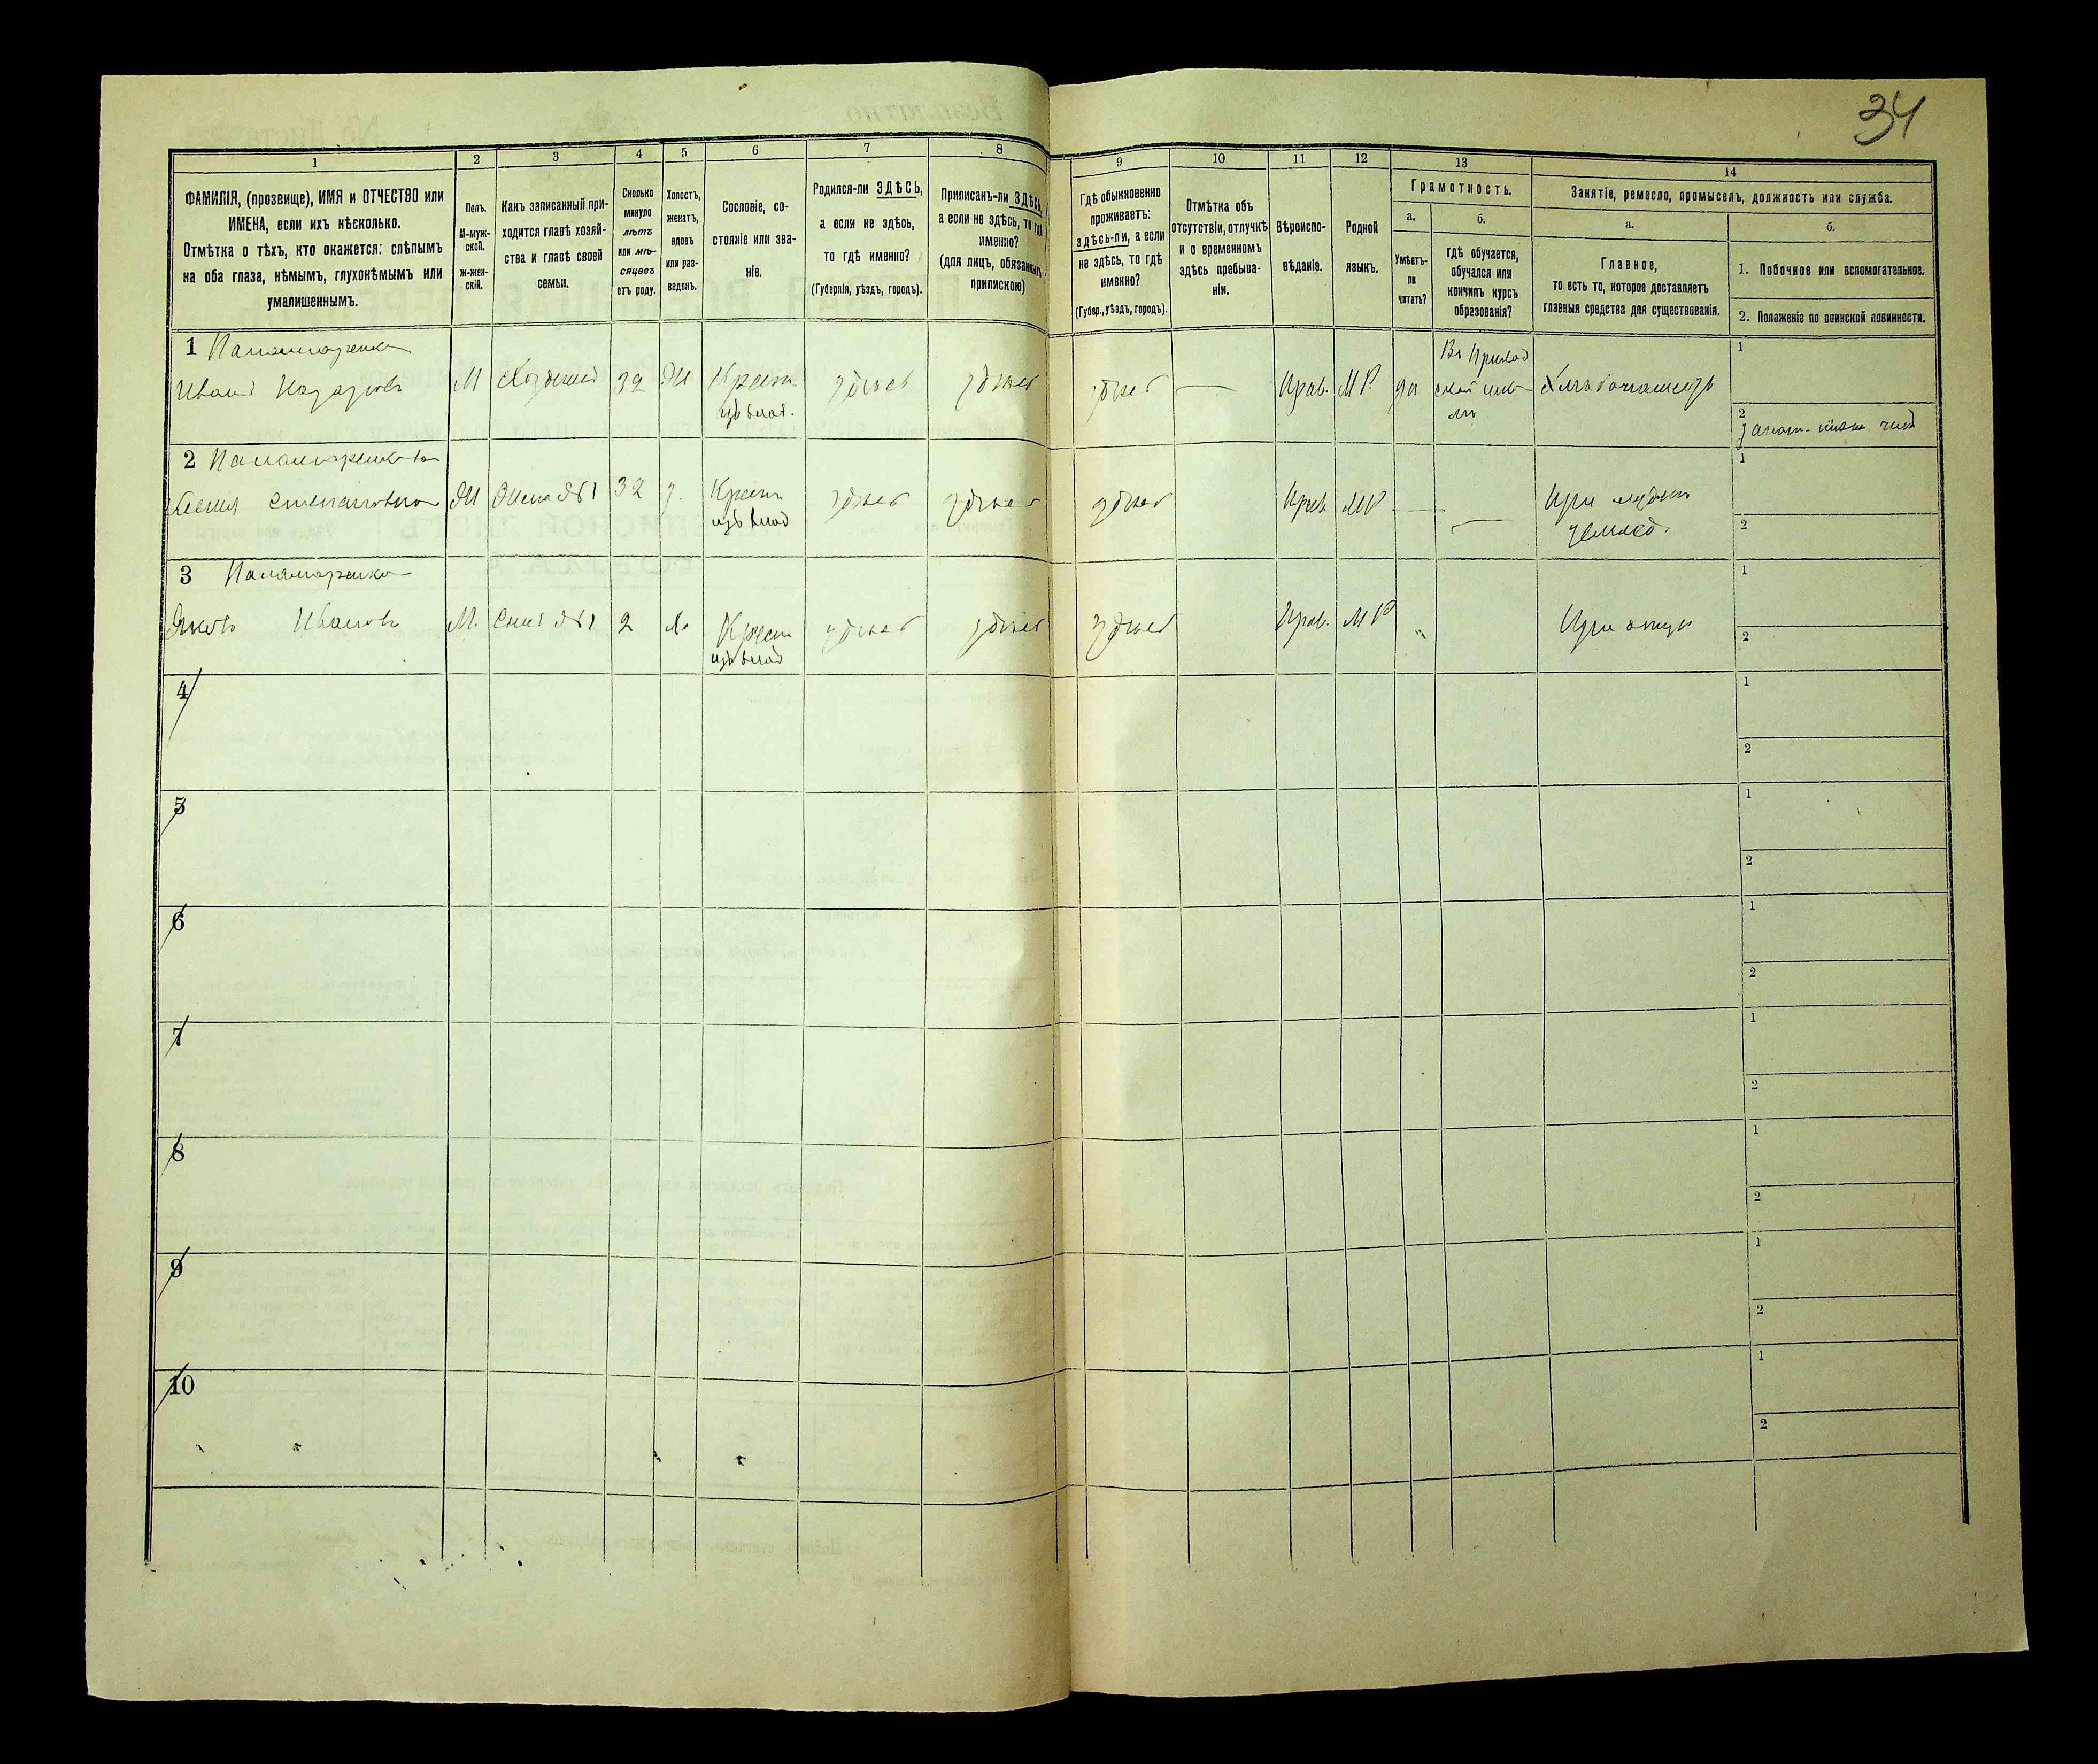 34
1
2
3
4
5
6
7
8
9
10
11
12
13
14
ФАМИЛІЯ, (прозвище), ИМЯ и ОТЧЕСТВО или
ИМЕНА, если ихъ нѣсколько.
Отмѣтка о тѣхъ, кто окажется: слѣпымъ
на оба глаза, нѣмымъ, глухонѣмымъ или
умалишеннымъ.
Полъ.
М-муж-
ской.
ж-жен-
скій.
Какъ записанный при-
ходится главѣ хозяй-
ства и главѣ своей
семьи.
Сколько
минуло
лѣтъ
или мѣ-
сяцевъ
отъ роду.
Холостъ,
женатъ,
вдовъ
или раз-
веденъ.
Сословіе, со-
стояніе или зва-
ніе.
Родился-ли ЗДѢСЬ,
а если не здѣсь,
то гдѣ именно?
(Губернія, уѣздъ, городъ).
Приписанъ-ли ЗДѢСЬ,
а если не здѣсь, то гдѣ
именно?
(для лицъ, обязанныхъ
припискою)
Гдѣ обыкновенно
проживаетъ:
здѣсь-ли, а если
не здѣсь, то гдѣ
именно?
(Губер., уѣздъ, городъ).
Отмѣтка объ
отсутствіи, отлучкѣ
и о временномъ
здѣсь пребыва-
ніи.
Вѣроиспо-
вѣданіе.
Родной
языкъ.
Грамотность.
а.
Умѣетъ-
ли
читать?
б.
гдѣ обучается,
обучался или
кончилъ курсъ
образованія?
Занятіе, ремесло, промыселъ, должность или служба.
а.
Главное,
то есть то, которое доставляетъ
главныя средства для существованія.
б.
1. Побочное или вспомогательное.
2. Положеніе по воинской повинности.
1 Панамаренко
Иванъ Назаровъ
М
Хозяинъ
32
Ж
Крест.
изъ влад.
здѣсь
здѣсь
здѣсь
Прав.
М Р.
да
Въ приход
ской шко-
лѣ
Хлѣбопашецъ
1
2
2 Панамаренкова
Ксенія Степановна
Ж
Жена №1
32
З.
Крест
изъ влад
здѣсь
здѣсь
здѣсь
Прав
МР
При мужѣ
землед.
1
2
3 Панамаренко
Яковъ Ивановъ
М.
Сынъ №1
2
Х.
Крест
изъ влад
здѣсь
здѣсь
здѣсь
Прав.
МР
"
При отцѣ
1
2
4
1
2
5
1
2
6
1
2
7
1
2
8
1
2
9
1
2
10
1
2